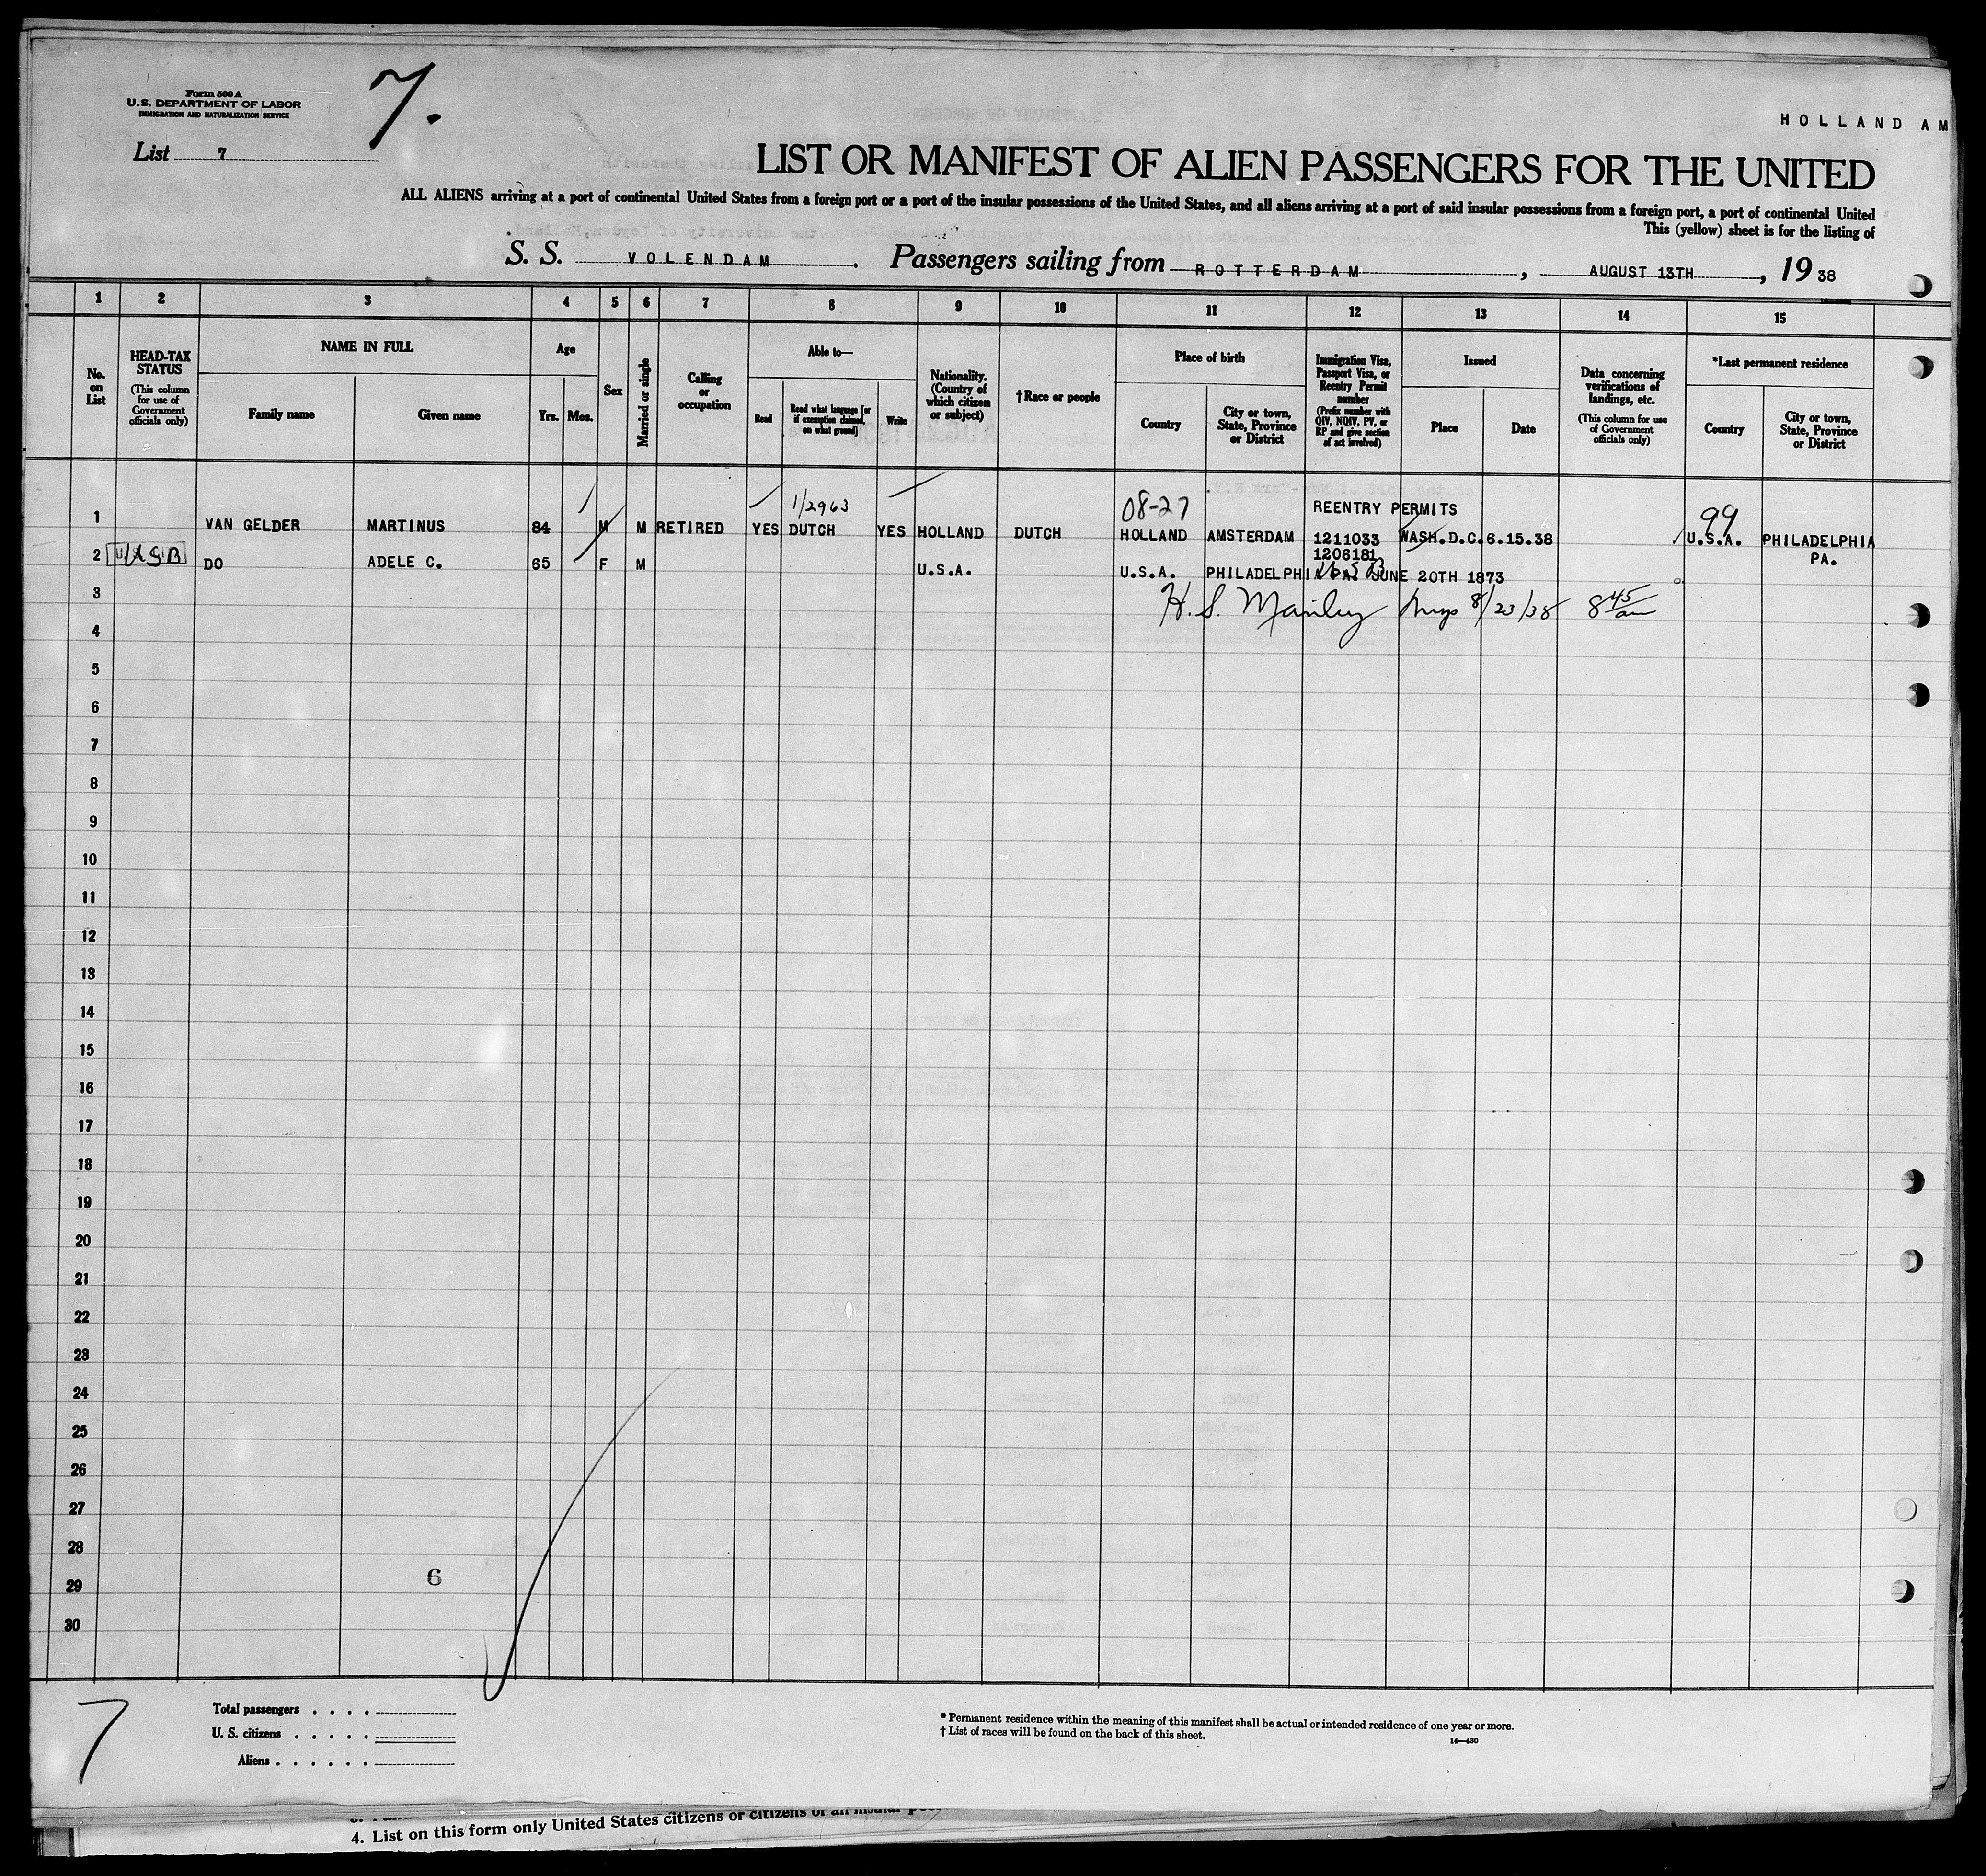 Form 500 A
U.S. DEPARTMENT OF LABOR
IMMIGRATION AND NATURALIZATION SERVICE
7.
List 7
HOLLAND AM
LIST OR MANIFEST OF ALIEN PASSENGERS FOR THE UNITED
ALL ALIENS arriving at a port of continental United States from a foreign port or a port of the insular possessions of the United States, and all aliens arriving at a port of said insular possessions from a foreign port, a port of continental United
This (yellow) sheet is for the listing of
S. S. VOLENDAM. Passengers sailing from ROTTERDAM, AUGUST 13TH, 19 38
1 2 3 4 5 6 7 8 9 10 11 12 13 14 15
No. on List
HEAD-TAX STATUS
(This column for use of Government officials only)
NAME IN FULL
Family name
Given name
Age
Yrs. Mos.
Sex
Married or single
Calling or occupation
Able to—
Read
Read what language [or if exemption claimed, on what ground]
Write
Nationality. (Country of which citizen or subject)
†Race or people
Place of birth
Country
City or town, State, Province or District
Immigration Visa, Passport Visa, or Reentry Permit number
(Prefix number with QIV, NQIV, PV, or RP and give section of act involved)
Issued
Place
Date
Data concerning verifications of landings, etc.
(This column for use of Government officials only)
*Last permanent residence
Country
City or town, State, Province or District
1/2963 08-27 REENTRY PERMITS 99
1 VAN GELDER MARTINUS 84 M M RETIRED YES DUTCH YES HOLLAND DUTCH HOLLAND AMSTERDAM 1211033 WASH.D.C. 6.15.38 U.S.A. PHILADELPHIA
1206181 PA.
2 USB DO ADELE C. 65 F M U.S.A. U.S.A. PHILADELPHIA PA. USB JUNE 20TH 1873
3 H. S. Manley 8/23/38 8 45 am
4
5
6
7
8
9
10
11
12
13
14
15
16
17
18
19
20
21
22
23
24
25
26
27
28
29
30
6
7
Total passengers . . . .
U. S. citizens . . . . .
Aliens . . . . . .
* Permanent residence within the meaning of this manifest shall be actual or intended residence of one year or more.
† List of races will be found on the back of this sheet.
14—430
4. List on this form only United States citizens or citizens of an insular